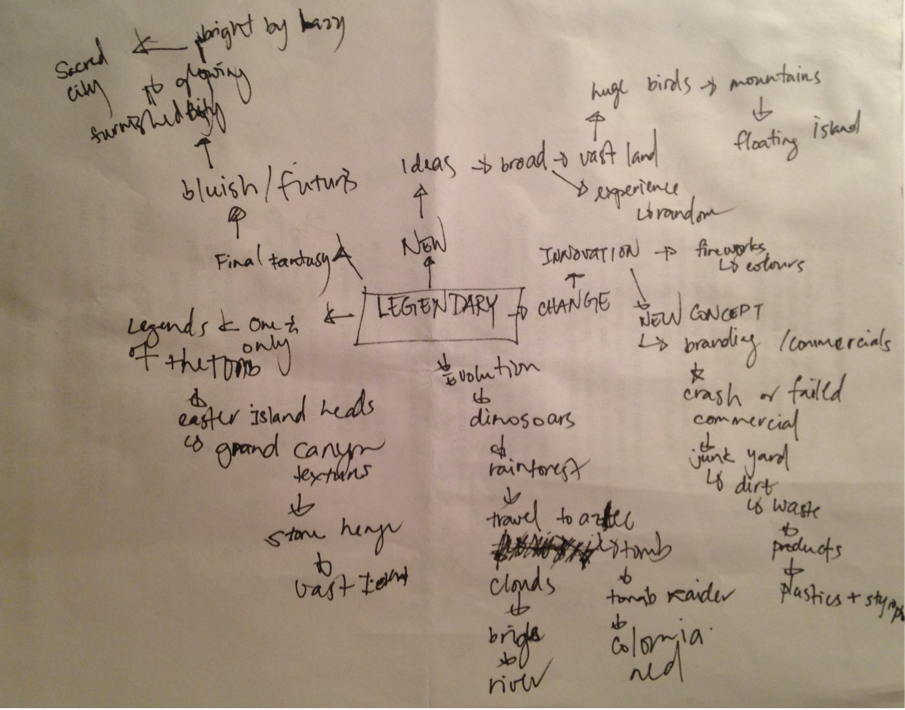 bright by hazy
Sacred
city
glowing
furnished city
bluish / future
Final fantasy
huge birds
mountains
floating island
Ideas
broad
vast land
experience
random
NEW
INNOVATION
fireworks
colours
LEGENDARY
CHANGE
NEW CONCEPT
branding / commercials
crash or failed
commercial
junk yard
dirt
waste
products
plastics +
one &
only
Legends
of the tomb
easter island heads
grand canyon
textures
stone henge
vast
Evolution
dinosoars
rainforest
travel to aztec
tomb
tomb raider
red
clouds
bridge
river